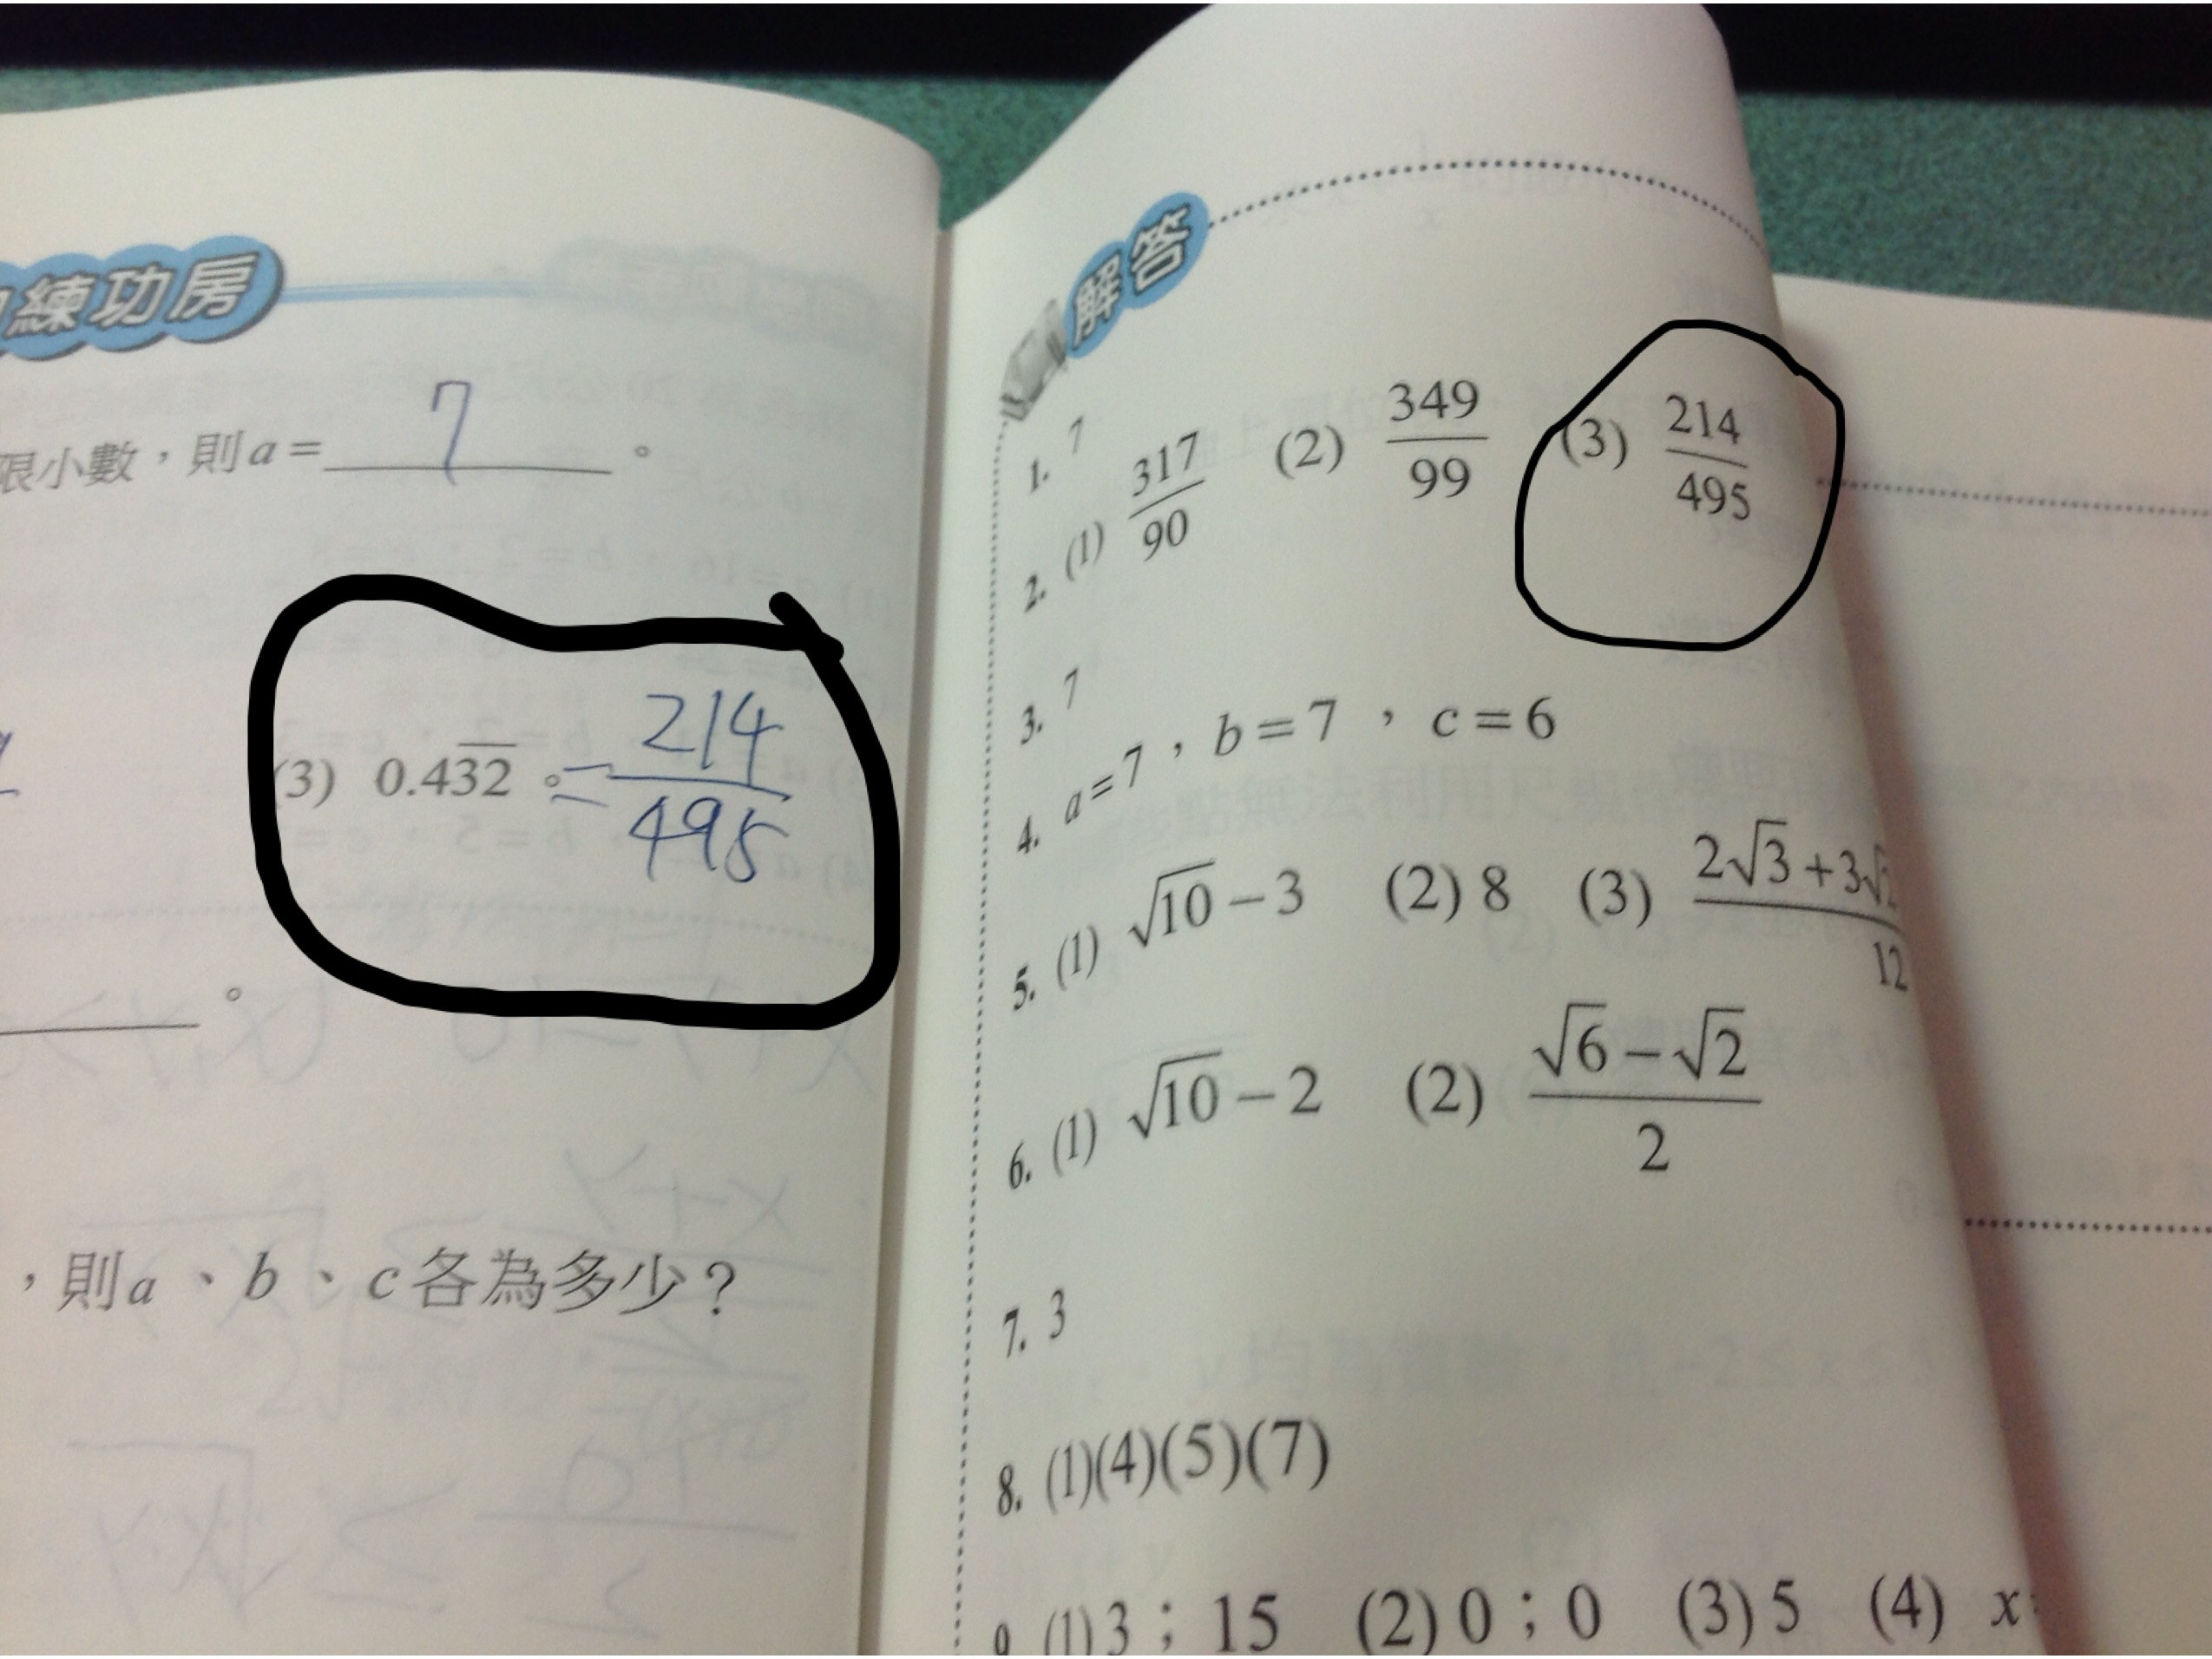 練功房
限小數，則a＝ 7 。
(3) 0.4\overline{32} 。= \frac{214}{495}
。
，則a、b、c各為多少？
解答
1. 7
2. (1) \frac{317}{90} (2) \frac{349}{99} (3) \frac{214}{495}
3. 7
4. a＝7，b＝7，c＝6
5. (1) \sqrt{10}－3 (2) 8 (3)
12
6. (1) \sqrt{10}－2 (2) \frac{\sqrt{6}－\sqrt{2}}{2}
7. 3
8. (1)(4)(5)(7)
9. (1) 3；15 (2) 0；0 (3) 5 (4) x